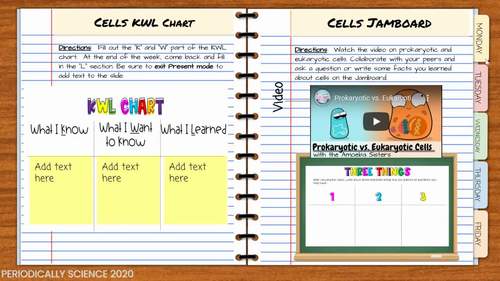 CELLS KWL CHART
Directions: Fill out the "K" and "W" part of the KWL
chart. At the end of the week, come back and fill
in the "L" section. Be sure to exit Present mode to
add text to the slide.
KWL CHART
What I Know
What I Want
to Know
What I Learned
Add text
here
Add text
here
Add text
here
CELLS JAMBOARD
Directions: Watch the video on prokaryotic and
eukaryotic cells. Collaborate with your peers and
ask a question or write some facts you learned
about cells on the Jamboard.
Video
Prokaryotic vs. Eukaryoti
Prokaryotic vs. Eukaryotic Cells
with the Amoeba Sisters
THREE THINGS
1
2
3
MONDAY
TUESDAY
WEDNESDAY
THURSDAY
FRIDAY
PERIODICALLY SCIENCE 2020